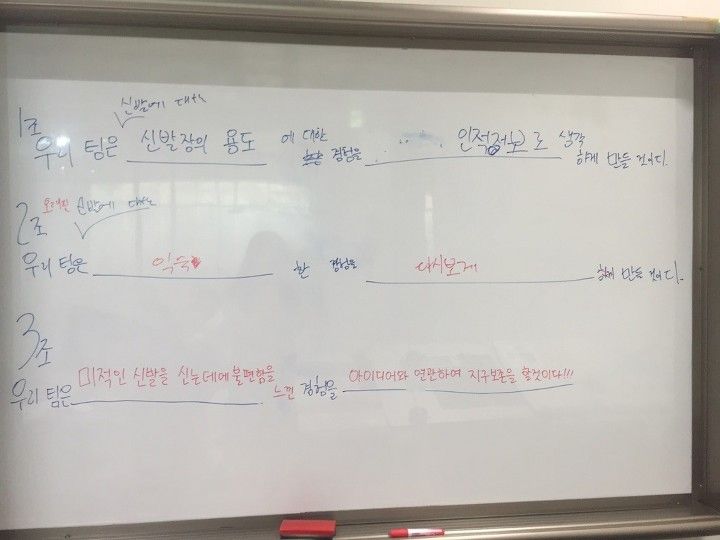 신발에 대한
1조
우리 팀은 신발장의 용도 에 대한 경험을 인적정보로 생각 하게 만들 것이다.
2조 신발에 대한
우리 팀은 익숙 한 경험을 다시보게 하게 만들 것이다.
3조
우리 팀은 미적인 신발을 신는데에 불편함을 느낀 경험을 아이디어와 연관하여 지구보존을 할것이다!!!